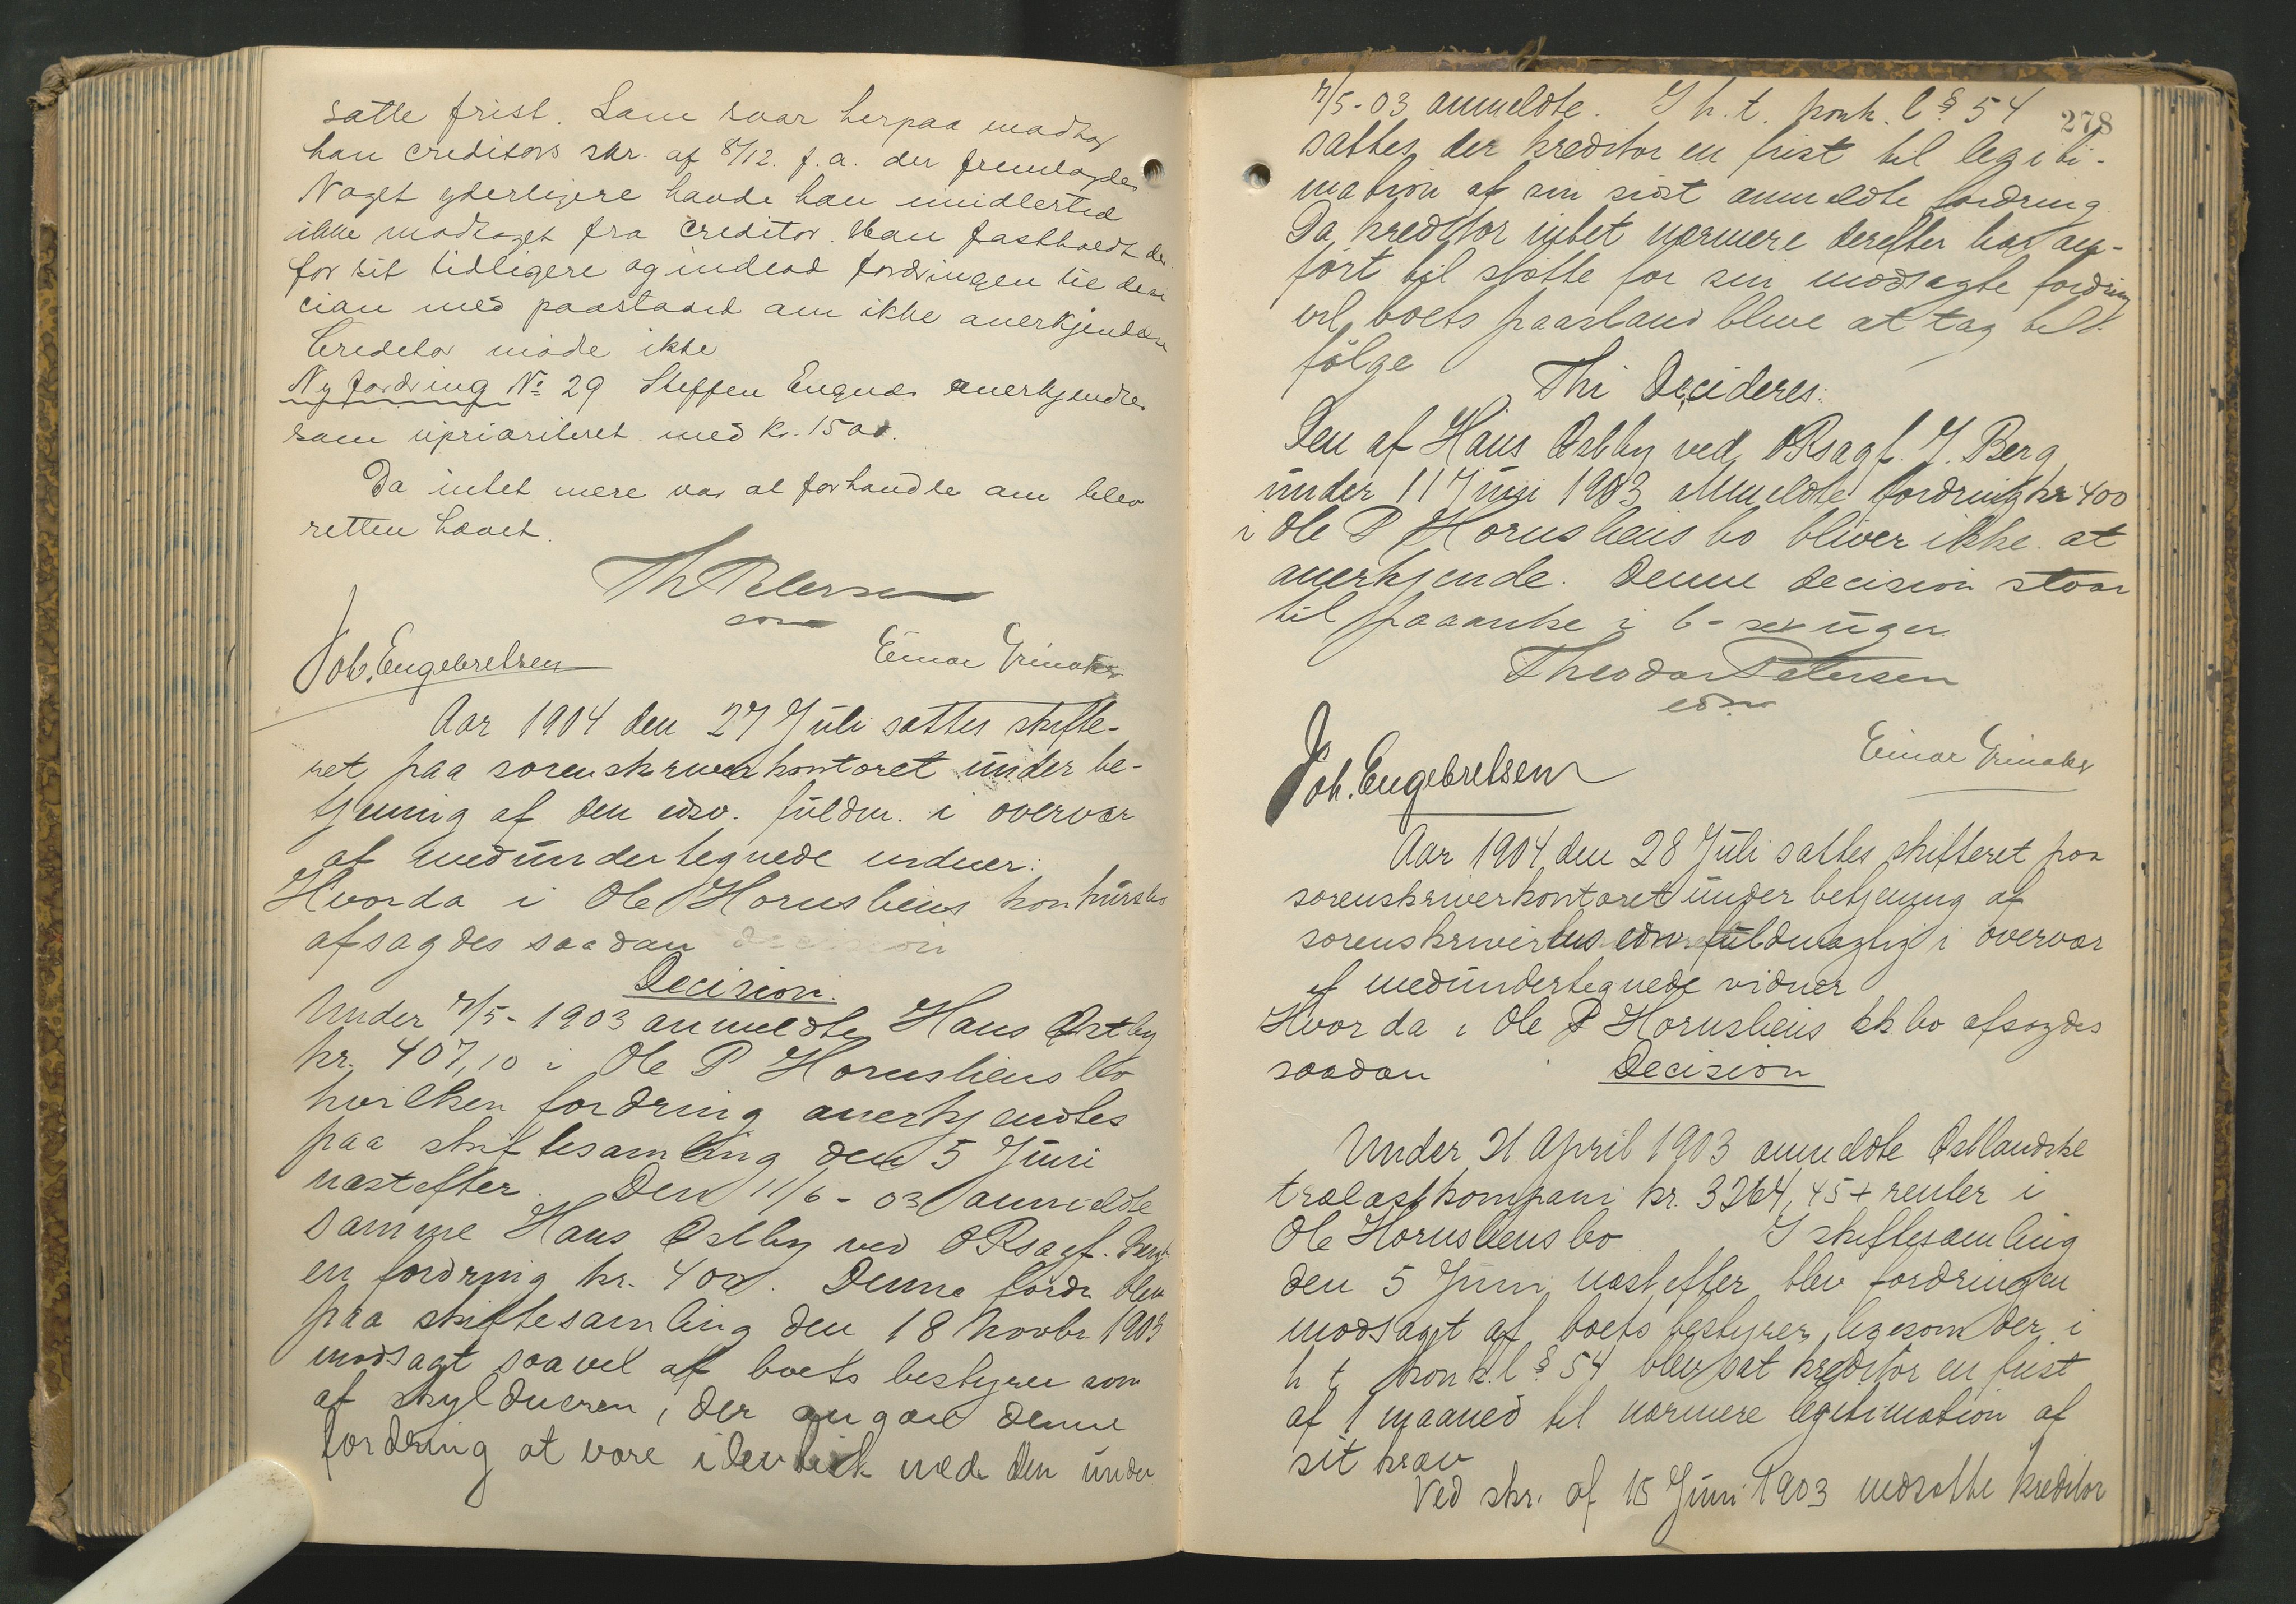 satte frist. Som svar herpaa modtog
han creditors skr. af 8/12. f. a. der fremlagdes
Noget yderligere havde han imidlertid
ikke modtaget fra creditor. Han fastholdt der
for sit tidligere og indlod fordringen til deci
cion med paastand om ikke anerkjendelse
Creditor møde ikke
Ny fordring No 29 Steffen Engnæs anerkjendtes
som upriariteret med kr. 1500.
Da intet mere var at forhandle om blev
retten hævet.
Th Petersen
edsv
Joh. Engebretsen Einar Grinaker
Aar 1904 den 27 Juli sattes skifte-
ret paa sorenskriverkontoret under be-
tjening af den edsv. fuldm. i overvær
af medundertegnede vidner:
Hvorda i Ole Hornsliens konkursbo
afsagdes saadan decision
Decision.
Under 7/5 - 1903 anmeldte Hans Østby
kr. 407,10 i Ole P Hornsliens bo
hvilken fordring anerkjendtes
paa skiftesamling den 5 Juni
næstefter. Den 11/6 - 03 anmeldte
samme Hans Østby ved ORsagf. Berg
en fordring kr. 400. Denne fordr. blev
paa skiftesamling den 18 Novbr 1903
modsagt saavel af boets bestyrer som
af skyldneren, der angav denne
fordring at være identisk med den under
278
7/5 - 03 anmeldte. I h. t. konk. l § 54
sattes der kreditor en frist til legiti-
mation af sin sidst anmeldte fordring
Da kreditor intet nærmere derefter har an-
ført til støtte for sin modsagte fordring
vil boets paastand blive at tag til
følge
Thi Decideres:
Den af Hans Østby ved ORsagf. J. Berg
under 11 Juni 1903 anmeldte fordring kr 400
i Ole P Hornsliens bo bliver ikke at
anerkjende. Denne decision staar
til paaanke i 6 - sex uger.
Theodor Petersen
edsv
Joh. Engebretsen Einar Grinaker
Aar 1904 den 28 Juli sattes skifteret paa
sorenskriverkontoret under betjening af
sorenskriverens edsv fuldmægtig i overvær
af medundertegnede vidner
Hvor da i Ole P Hornsliens kk bo afsagdes
saadan Decision
Under 21 April 1903 anmeldte Østlandske
trælastkompani kr. 3264,45 + renter i
Ole Hornsliens bo I skiftesamling
den 5 Juni næstefter blev fordringen
modsagt af boets bestyrer, ligesom der i
h t konk. l § 54 blev sat kreditor en frist
af 1 maaned til nærmere legitimation af
sit krav
Ved skr. af 15 Juni 1903 nedsatte kreditor